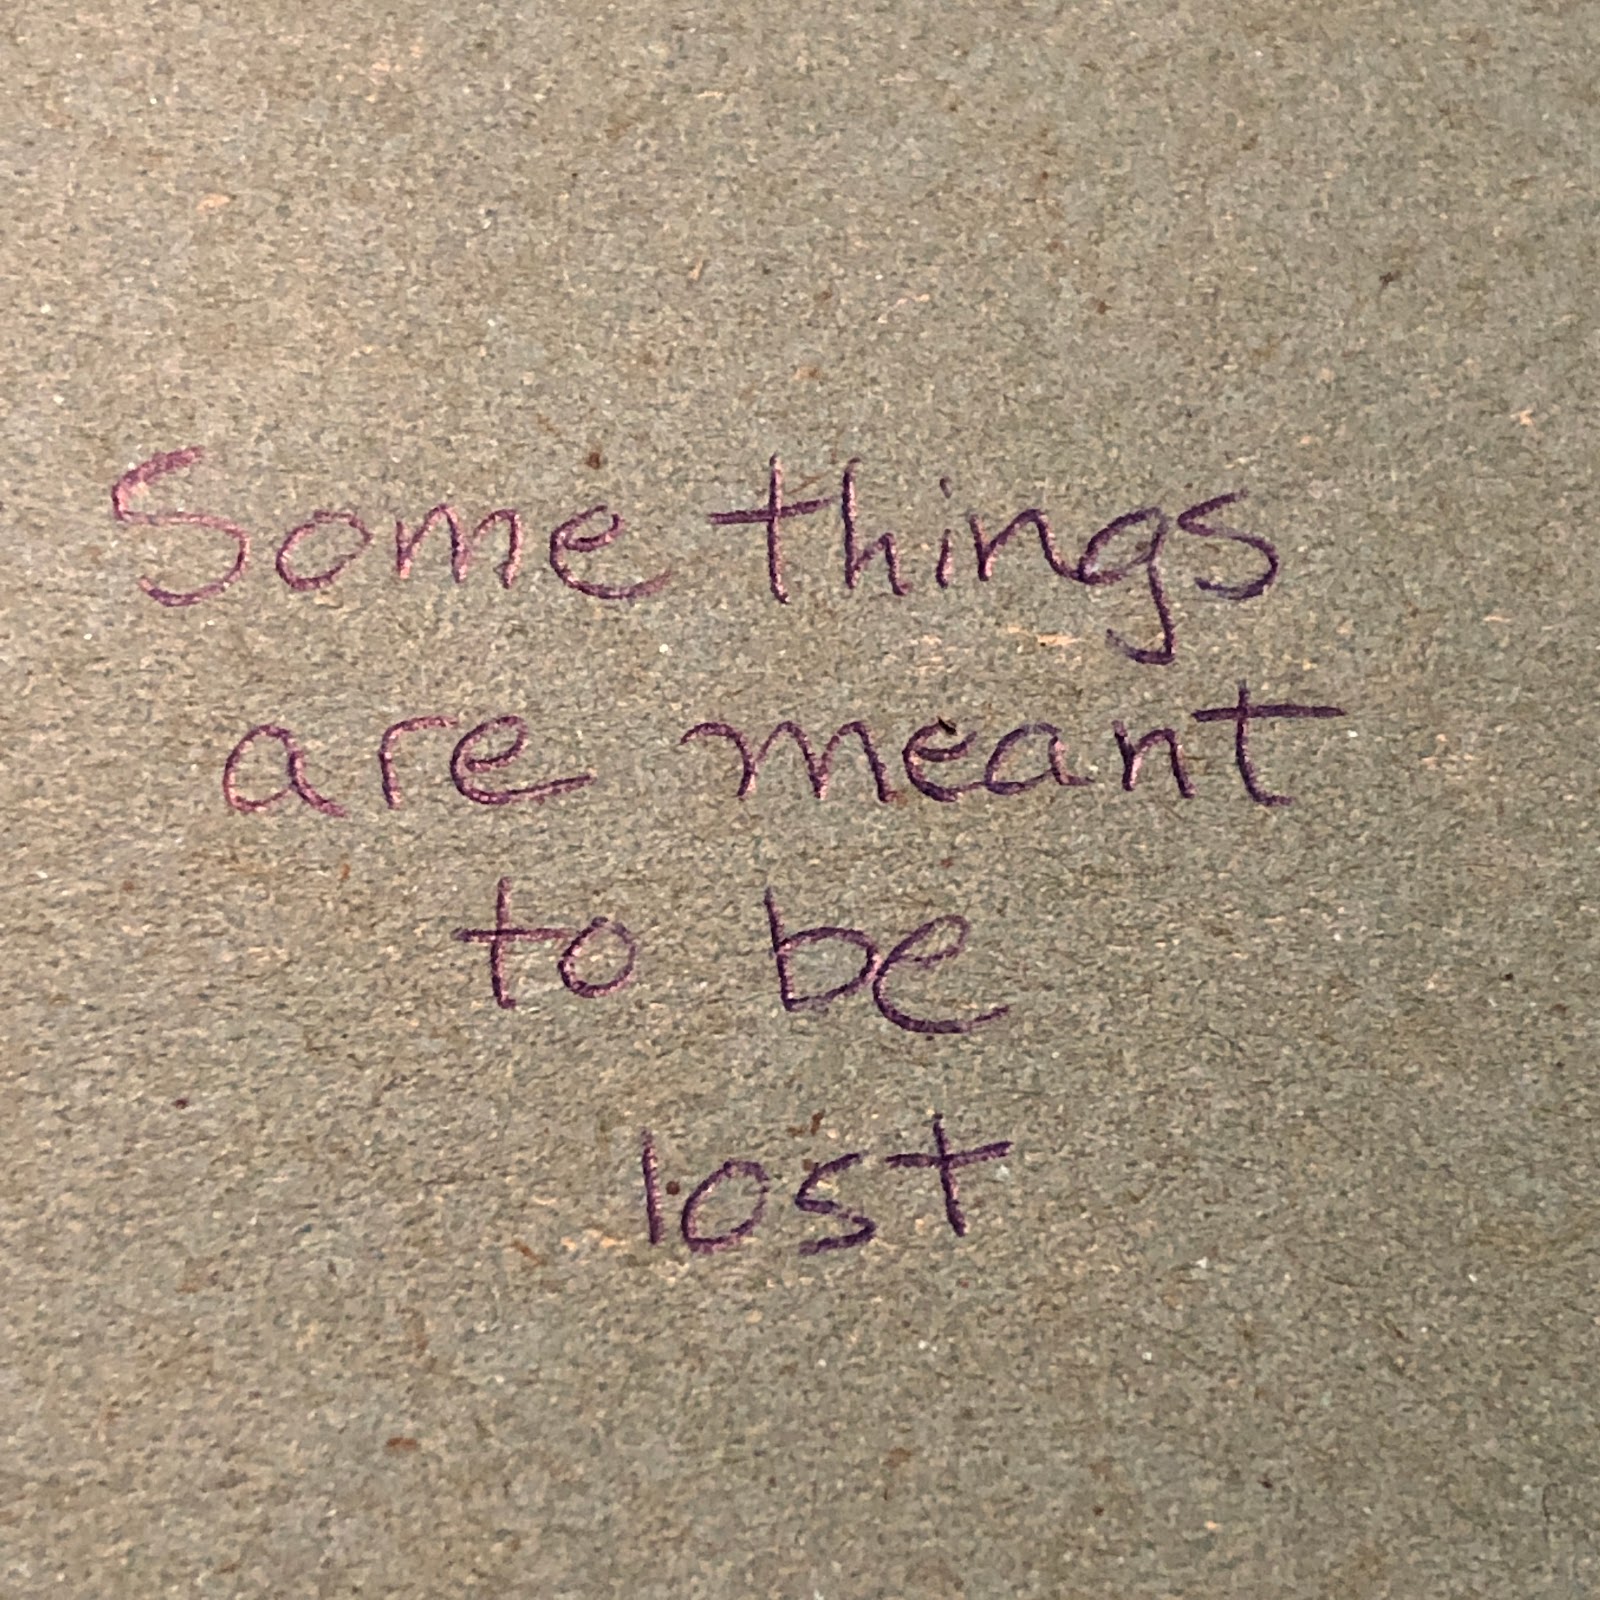 Some things
are meant
to be
lost